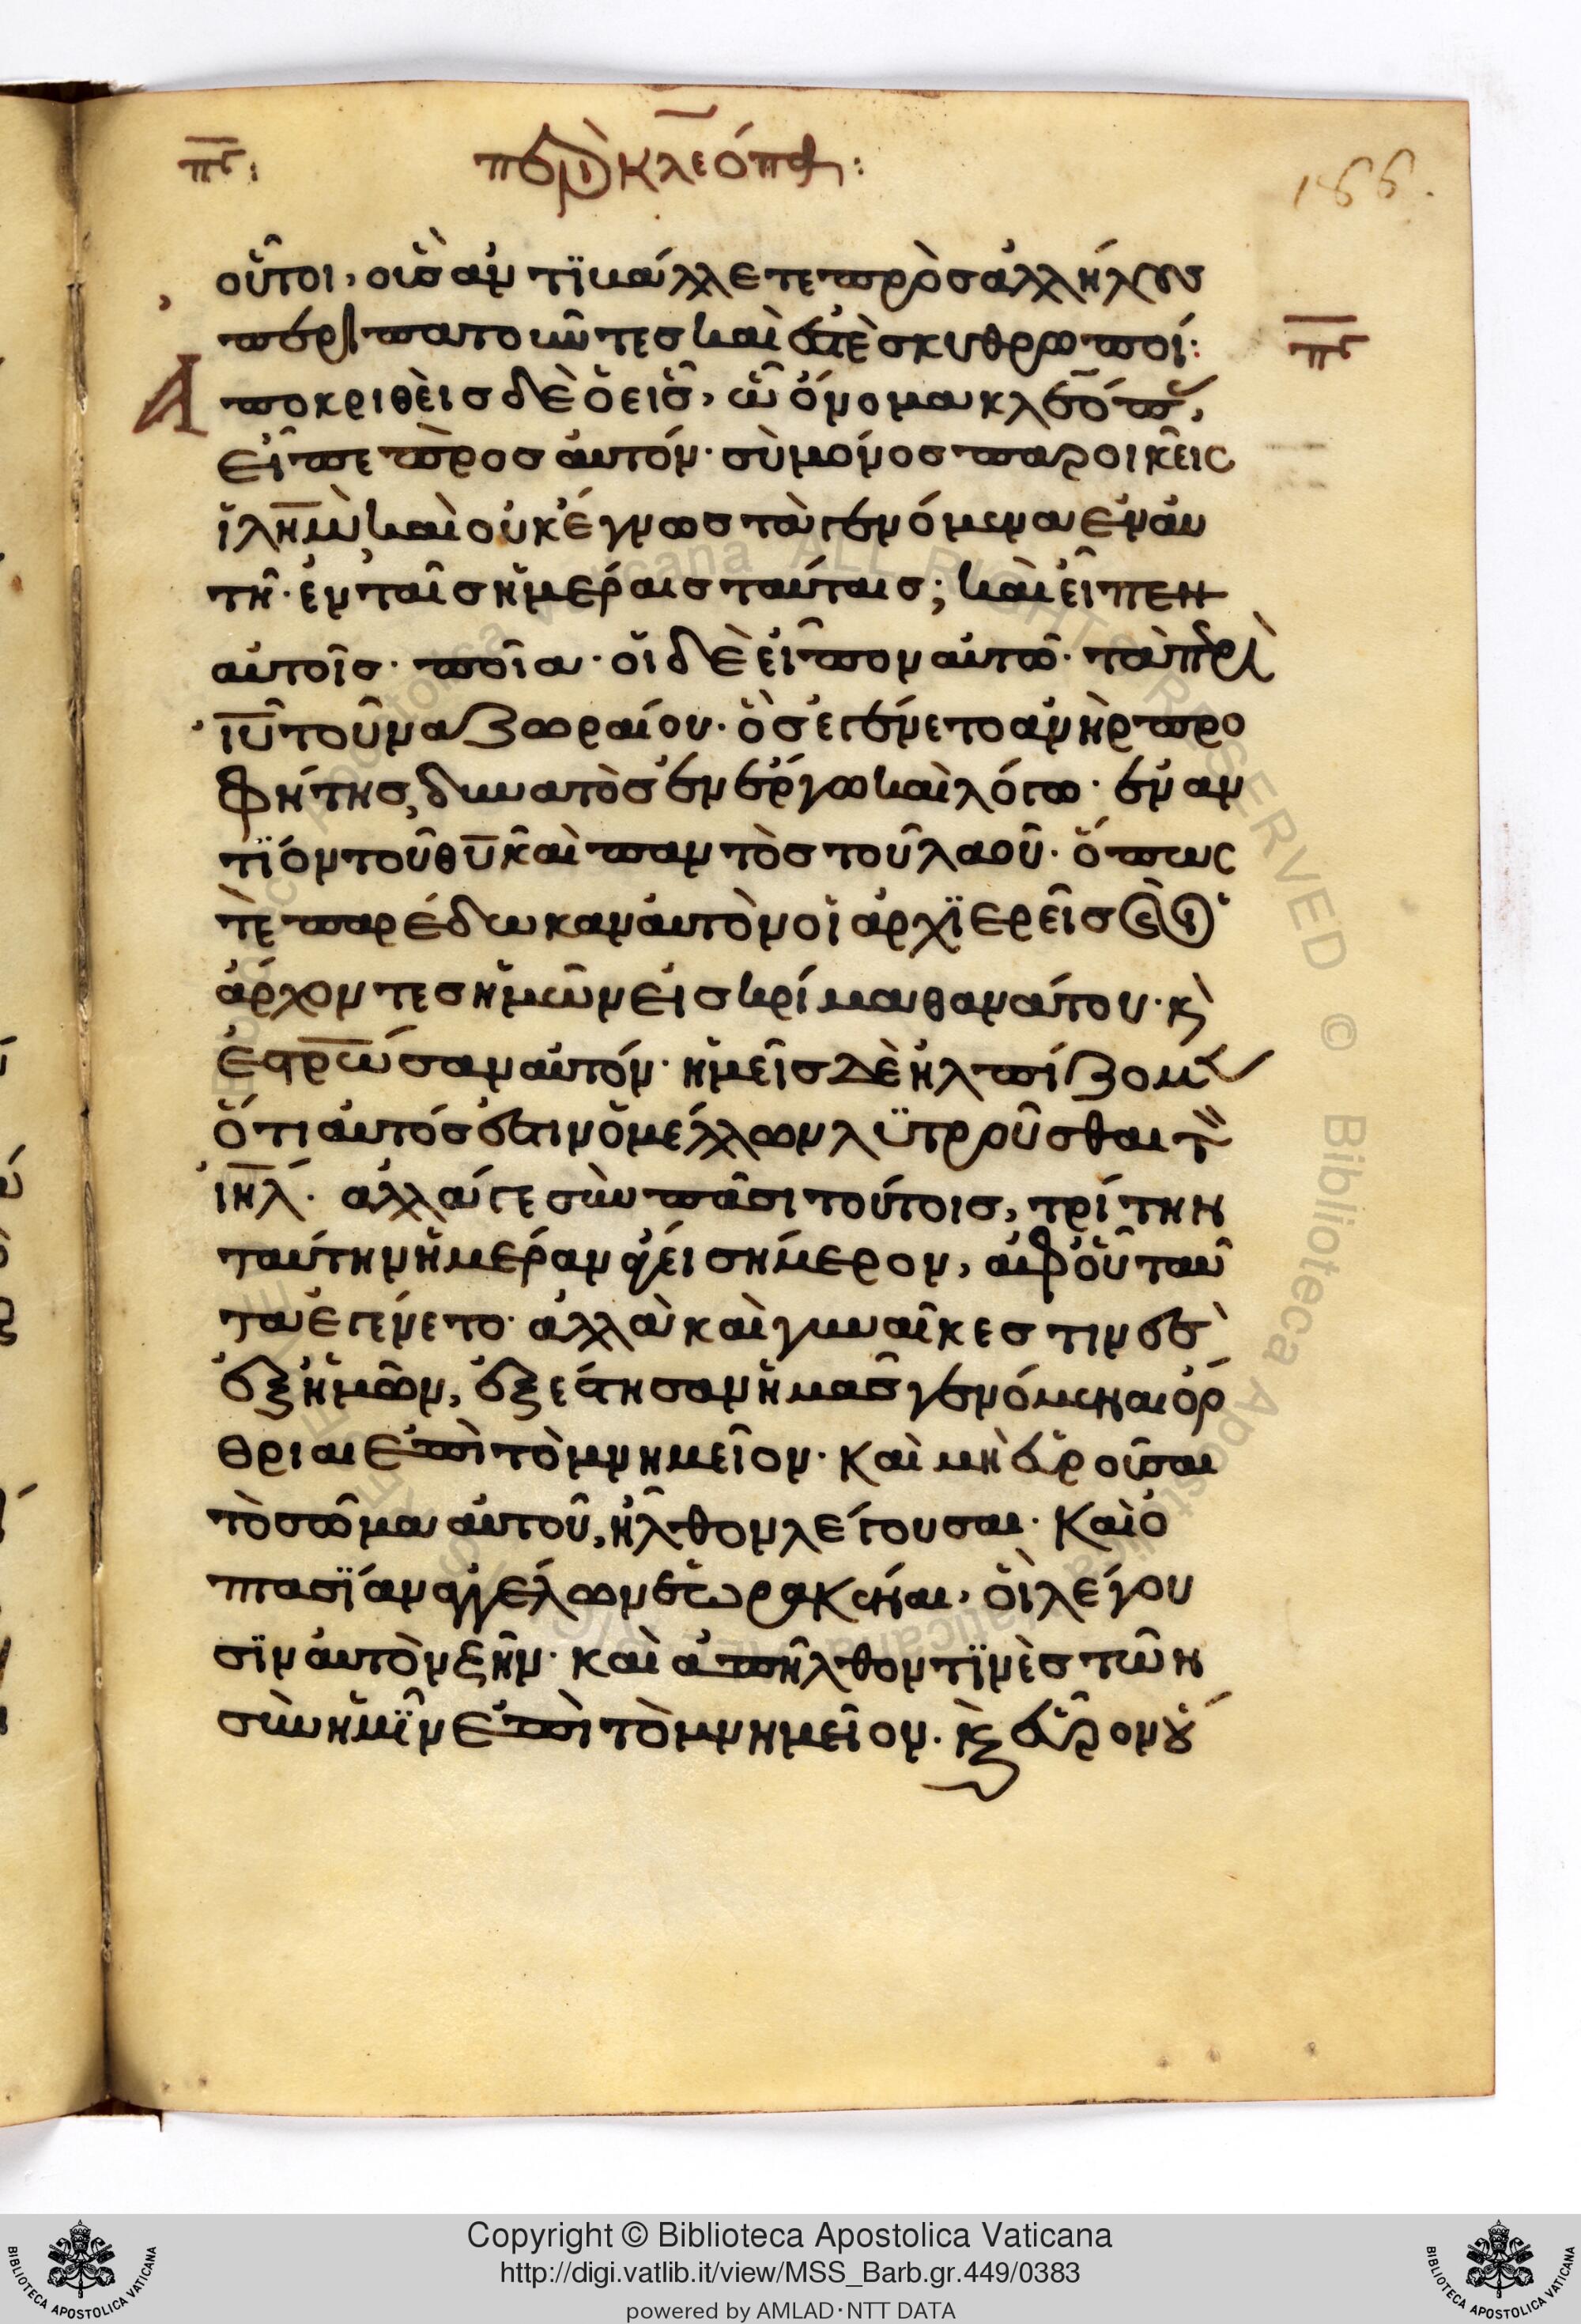 πγ: περὶ κλεόπα: 188.
οὗτοι, οὓς ἀντϊβάλλετε πρὸς ἀλλήλους
περιπατοῦντες καὶ ἐστὲ σκυθρωποί: πγ
Ἀποκριθεὶς δὲ ὁ εἷς, ᾧ ὄνομα κλεόπας,
εἶπε πρὸς αὐτόν· σὺ μόνος παροικεῖς
ἰλημ̅ καὶ οὐκ ἔγνως τὰ γενόμενα ἐν αὐ
τῇ· ἐν ταῖς ἡμέραις ταύταις; καὶ εἶπεν
αὐτοῖς· ποῖα· οἱ δὲ εἶπον αὐτῷ· τὰ περὶ
ιυ̅ τοῦ ναζωραίου· ὃς ἐγένετο ἀνὴρ προ
φήτης, δυνατὸς ἐν ἔργω καὶ λόγω· ἐναν
τϊόν τοῦ θυ̅ καὶ παντὸς τοῦ λαοῦ· ὅπως
τὲ παρέδωκαν αὐτὸν οἱ ἀρχϊερεῖς καὶ οἱ
ἄρχοντες ἡμῶν εἰς κρίμα θανάτου· κὶ
ἐστρω̅σαν αὐτόν· ἡμεῖς δὲ ἠλπίζομεν
ὅτι αὐτός ἐστιν ὁ μέλλων λϋτροῦσθαι τὸν
ἰηλ̅· ἀλλά γε σὺν πᾶσι τούτοις, τρίτην
ταύτην ἡμέραν ἄγει σήμερον, ἀφ' οὗ ταῦ
τα ἐγένετο· ἀλλὰ καὶ γυναῖκες τινὲς
ἐξ ἡμῶν, ἐξέστησαν ἡμᾶς γενόμεναι ὄρ
θριαι ἐπὶ τὸ μνημεῖον· καὶ μὴ εὑροῦσαι
τὸ σῶμα αὐτοῦ, ἦλθον λέγουσαι· καὶ ὀ
πτασϊάν ἀγγέλων ἑωρακέναι, οἳ λέγου
σϊν αὐτὸν ζῆν· καὶ ἀπῆλθον τϊνὲς τῶν
σὺν ἡμῖν ἐπὶ τὸ μνημεῖον. κὶ εὗρον οὕ
Copyright © Biblioteca Apostolica Vaticana
http://digi.vatlib.it/view/MSS_Barb.gr.449/0383
powered by AMLAD·NTT DATA